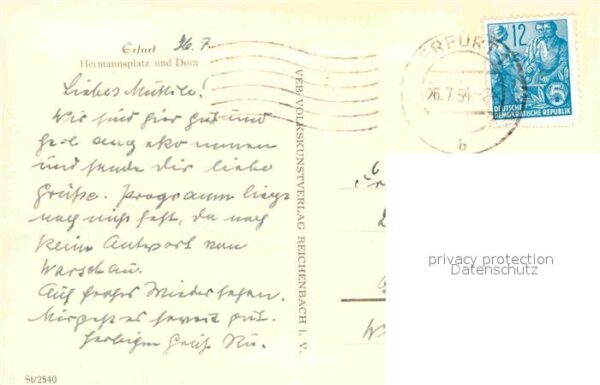 Erfurt 26.7.
Hermannsplatz und Dom
Liebes Muttile!
Wir sind hier gut und
angekommen
und sende dir liebe
Grüße. Programm liegt
noch nicht fest, da noch
keine Antwort von
Warschau.
Auf frohes Wiedersehen.
Mir geht es soweit gut.
Herzlichen Gruß
St/2540
VEB VOLKSKUNSTVERLAG REICHENBACH i. V.
ERFURT
26.7.54
b
12
DEUTSCHE
DEMOKRATISCHE REPUBLIK
5
privacy protection
Datenschutz